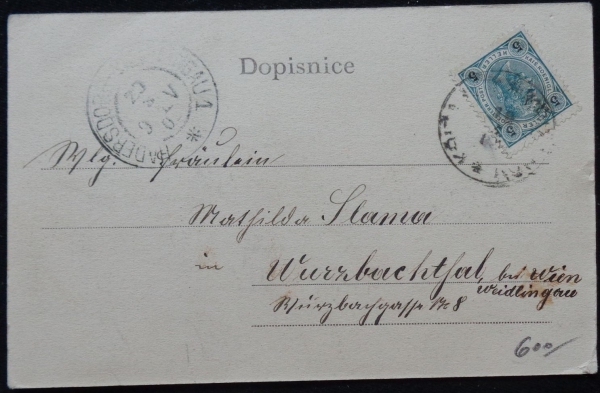 Dopisnice
5 5
5 5
HADERSDORF
1
Wlg. Fräulein
Mathilda Slama
in Wurzbachthal, bei Wien
Weidlingau
Wurzbachgasse No 8
600/